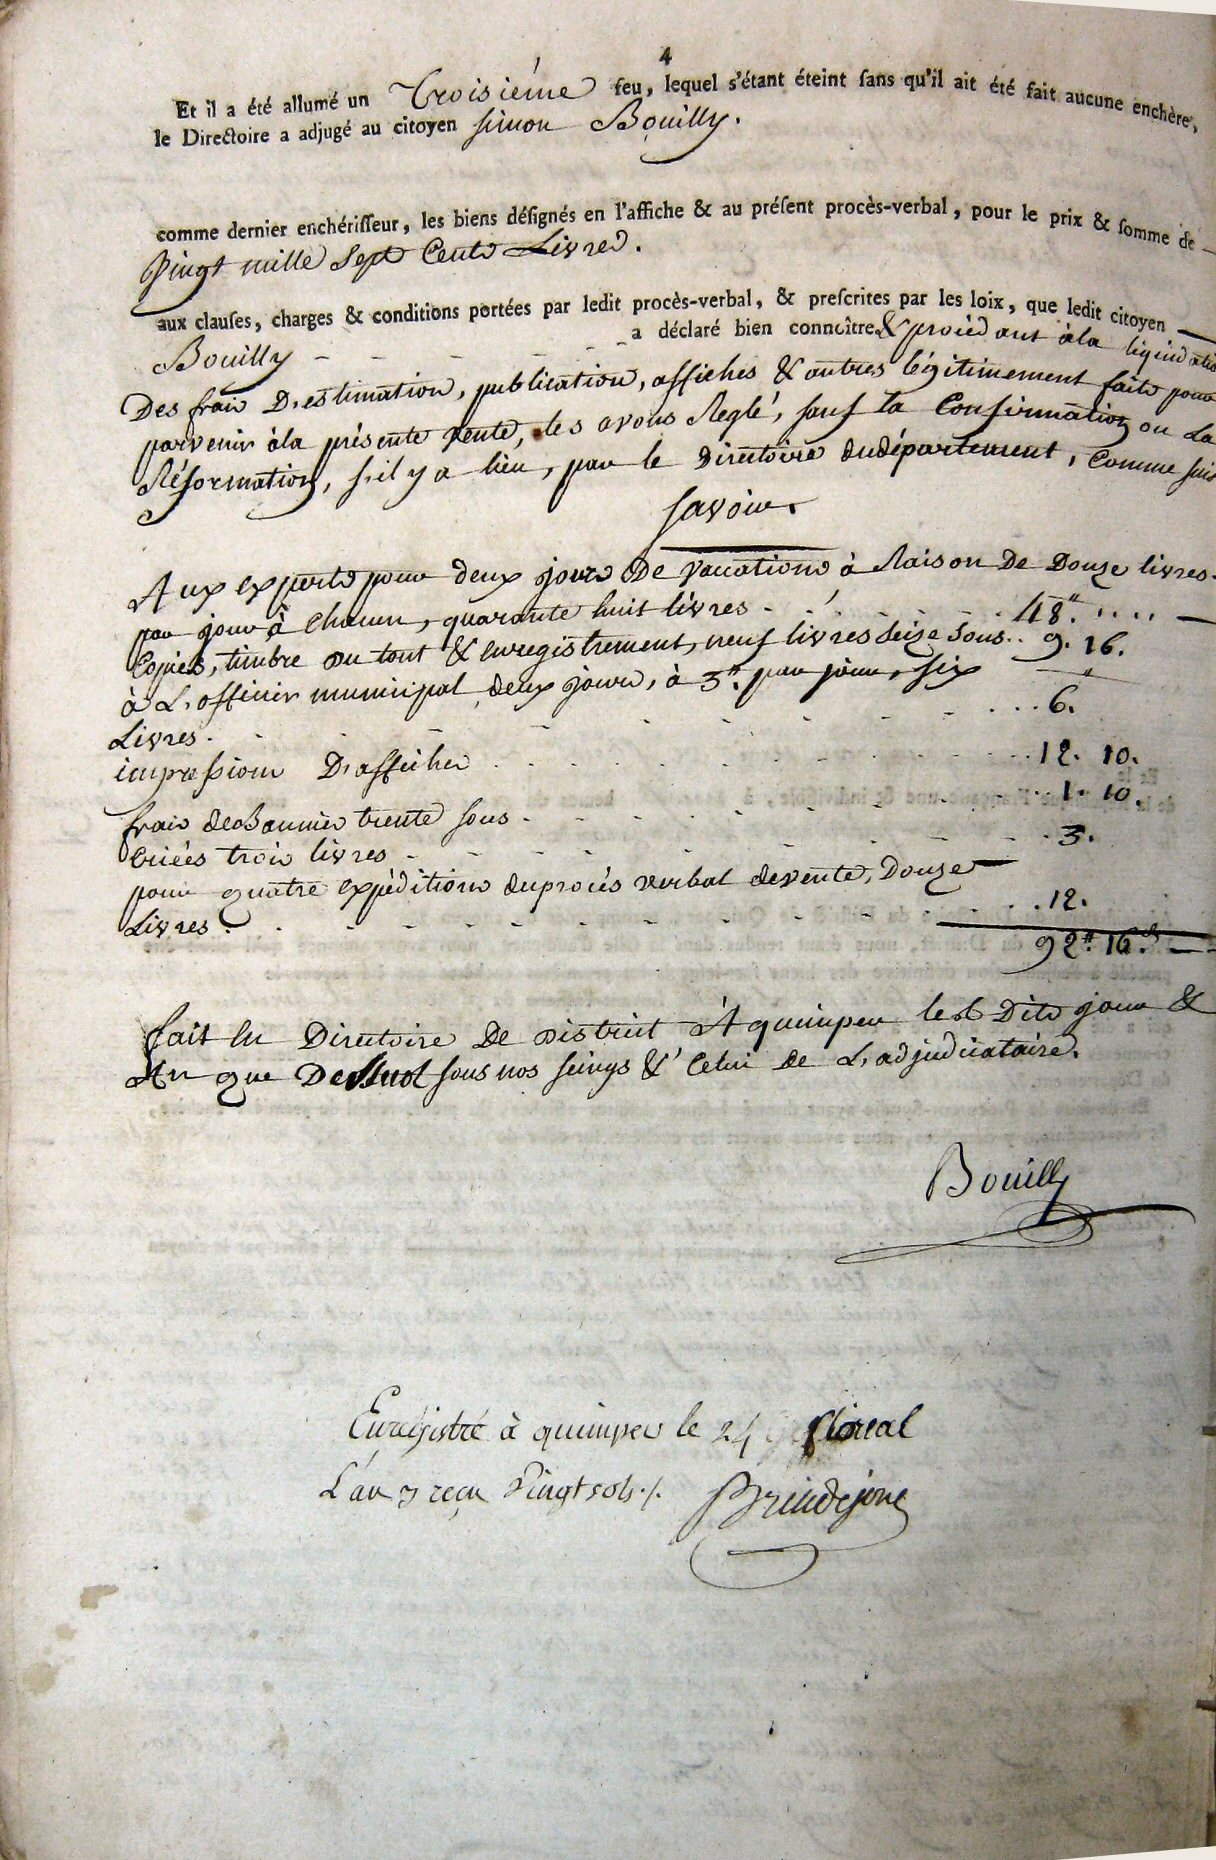 4
Et il a été allumé un Troisiéme feu, lequel s'étant éteint sans qu'il ait été fait aucune enchère,
le Directoire a adjugé au citoyen simon Bouilly.
comme dernier enchérisseur, les biens désignés en l'affiche & au présent procès-verbal, pour le prix & somme de
Vingt mille Sept Cents Livres.
aux clauses, charges & conditions portées par ledit procès-verbal, & prescrites par les loix, que ledit citoyen
Bouilly - - - - - - a déclaré bien connoître. & procédant à la liquidatio
Des frais D'estimation, publication, affiches & autres légitimement faits pour
parvenir à la présente Vente, les avons Reglé, sauf la Confirmation ou La
Réformation, s'il y a lieu, par le Directoire du département, Comme suit
Savoir.
Aux experts pour deux jours De Vacations à Raison De Douze livres.
par jour à Chacun, quarante huit livres - . . . 48ᵗᵗ. . . .
Copies, timbre du tout & enregistrement, neuf livres seize Sous. . 9. 16.
à L'officier municipal deux jours, à 3ᵗᵗ. par jour, six
Livres. - - - - - - . . . 6.
impressions D'affiches . . . . . . 12. 10.
frais de Bannies trente sous . - - - - 1. 10.
Criées trois livres - - - - - - 3.
pour quatre expéditions du procès verbal de vente, Douze
Livres. - - - - - - . . 12.
92ᵗᵗ. 16.ˢ
fait En Directoire De District À quimper les Dits jour &
An que Dessus sous nos seings & Celui de L'adjudicataire.
Bouilly
Enregistré à quimper le 24 floreal
L'an 3 reçu Vingt sols ./.
Brindejonc